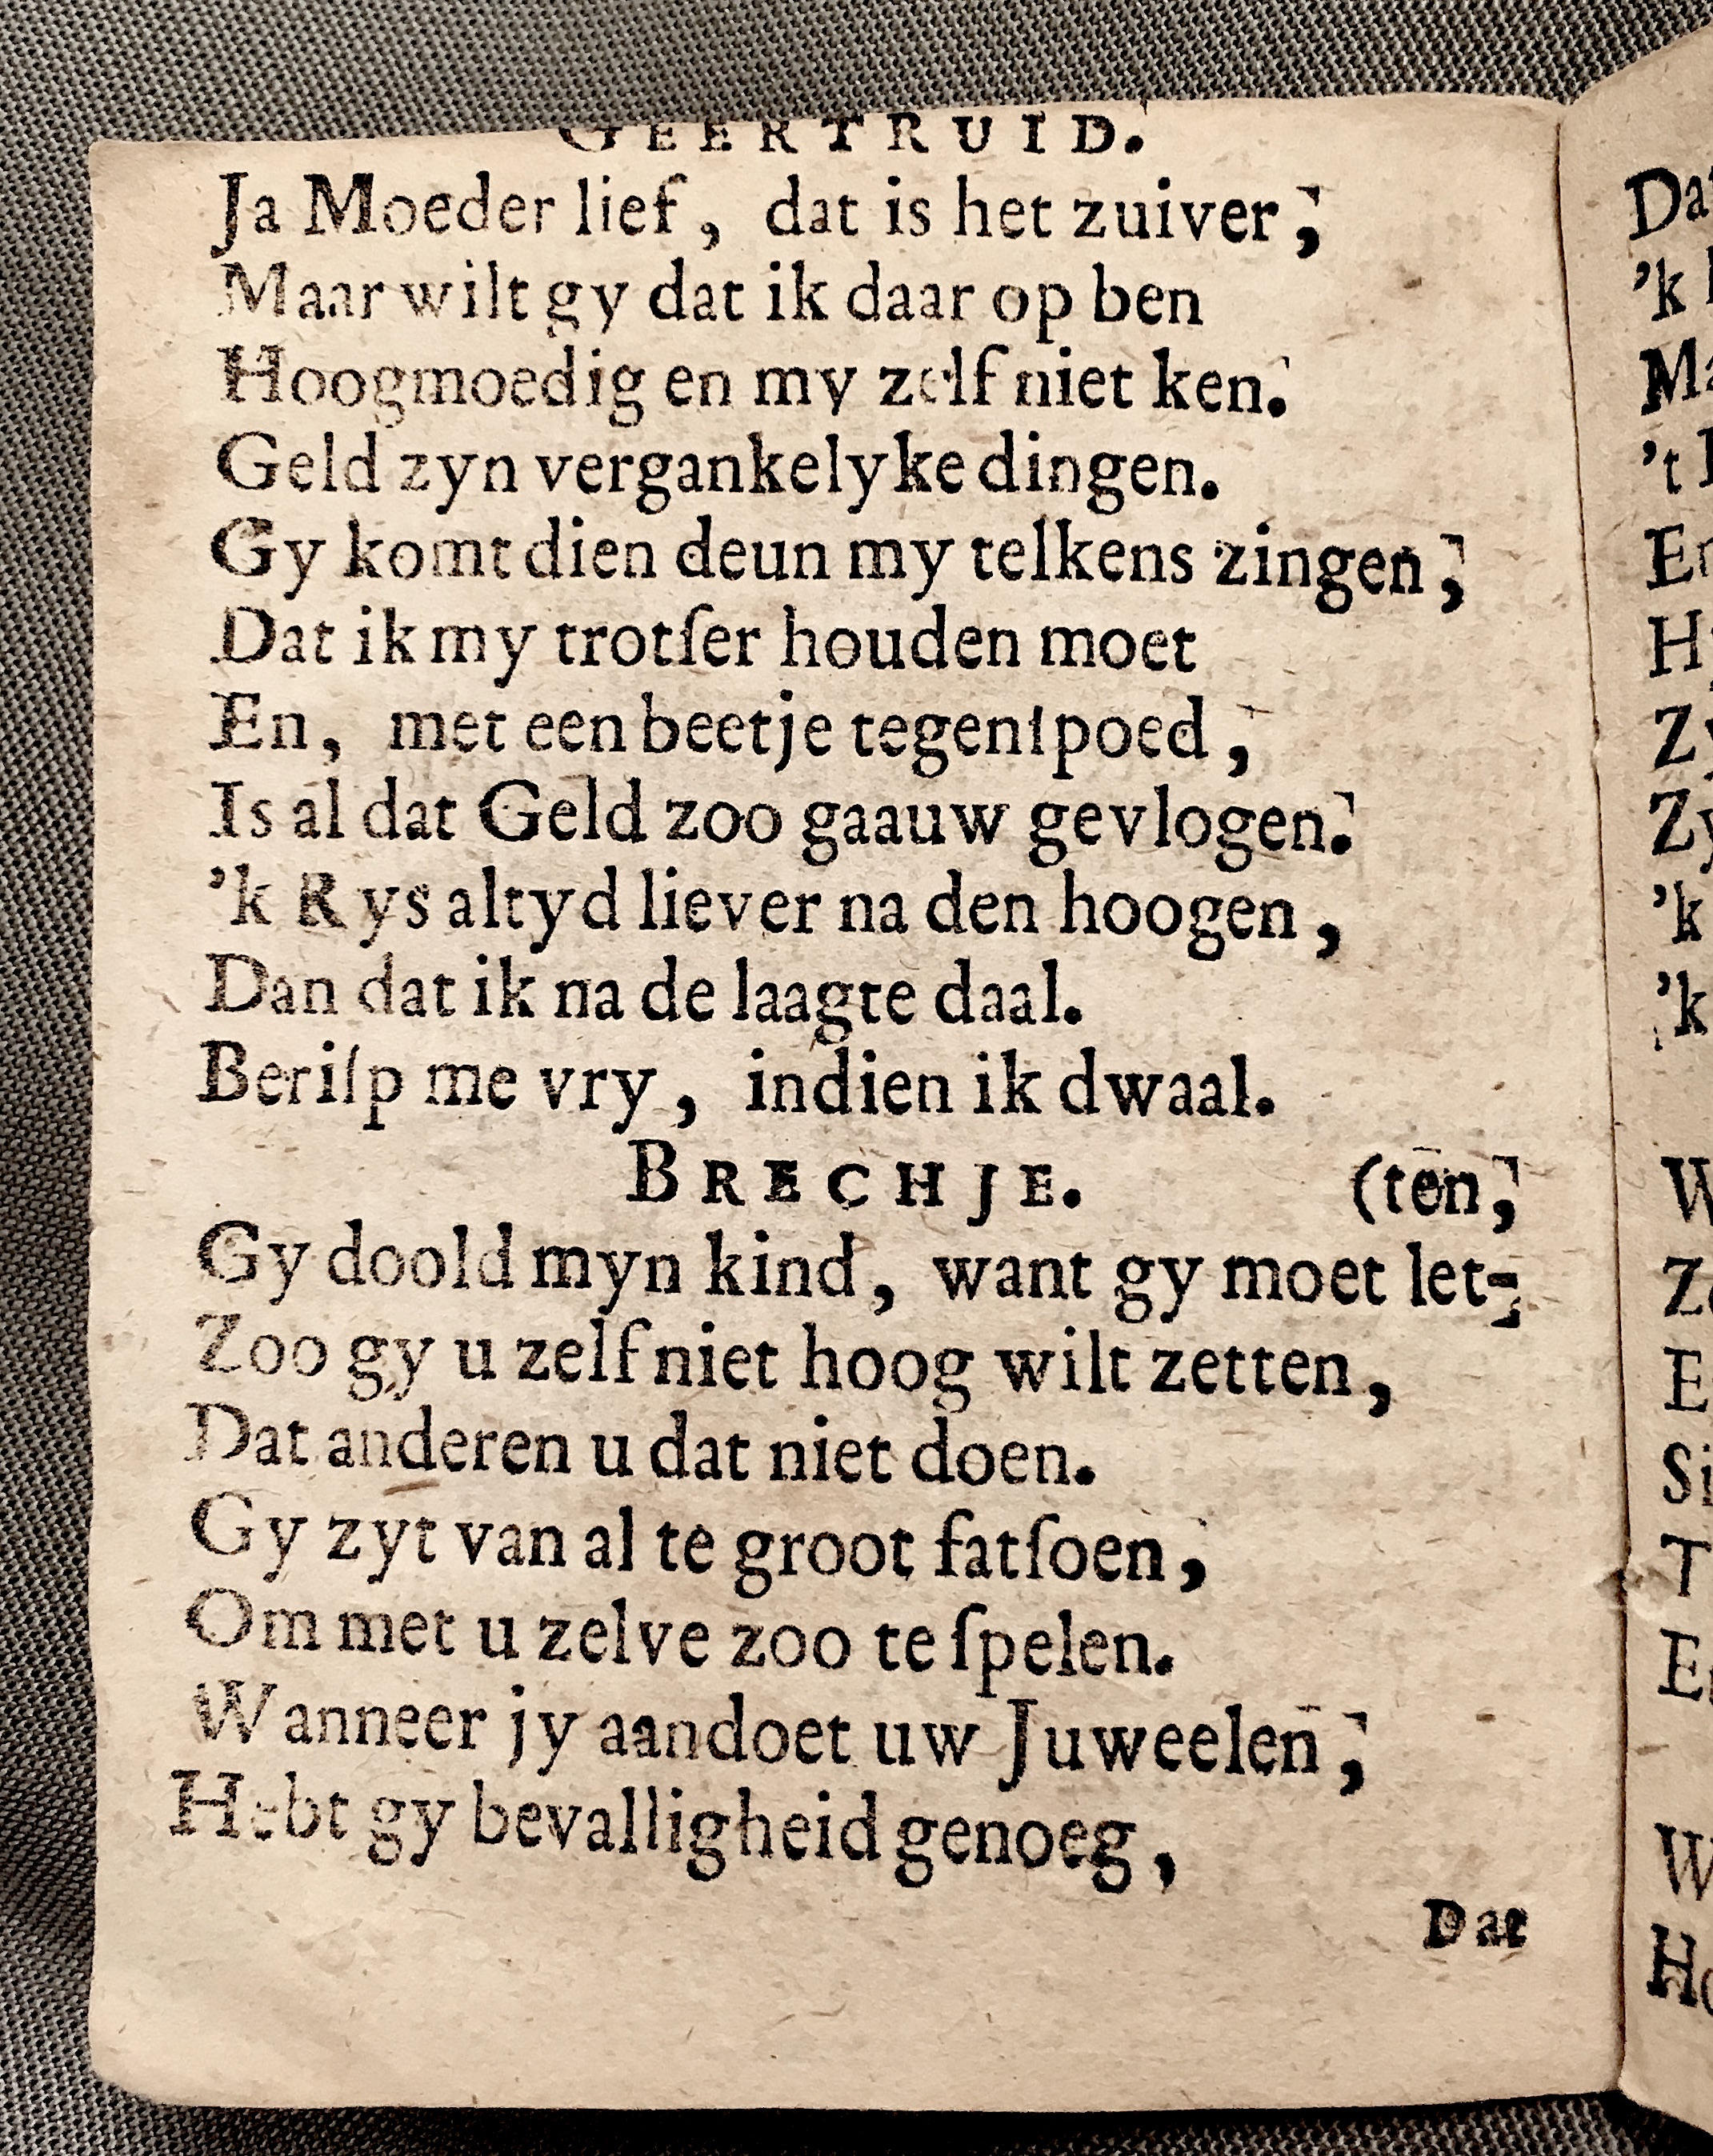 GEERTRUID.
Ja Moeder lief, dat is het zuiver,
Maar wilt gy dat ik daar op ben
Hoogmoedig en my zelf niet ken.
Geld zyn vergankelyke dingen.
Gy komt dien deun my telkens zingen,
Dat ik my trotſer houden moet
En, met een beetje tegenſpoed,
Is al dat Geld zoo gaauw gevlogen.
'k Rys altyd liever na den hoogen,
Dan dat ik na de laagte daal.
Beriſp me vry, indien ik dwaal.
BRECHJE. (ten,
Gy doold myn kind, want gy moet let-
Zoo gy u zelf niet hoog wilt zetten,
Dat anderen u dat niet doen.
Gy zyt van al te groot fatſoen,
Om met u zelve zoo te ſpelen.
Wanneer jy aandoet uw Juweelen,
Hebt gy bevalligheid genoeg,
Dat
'k
Ma
't
En
Zy
Zy
'k
'k
W
Zo
E
Si
T
W
Ho